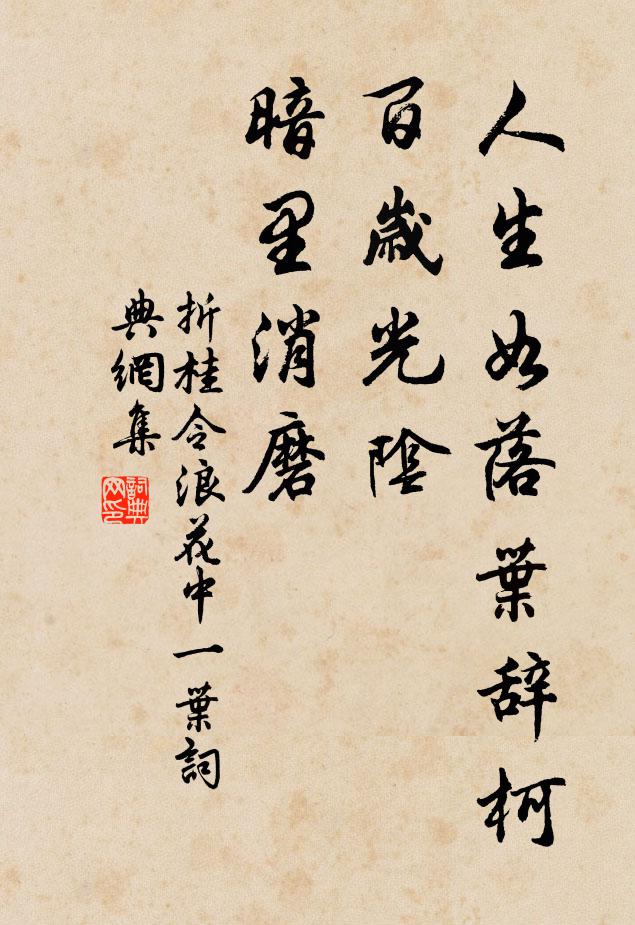 人生如落葉辞柯
百歲光陰
暗里消磨
折桂令浪花中一葉詞
典網集
詞典
网印